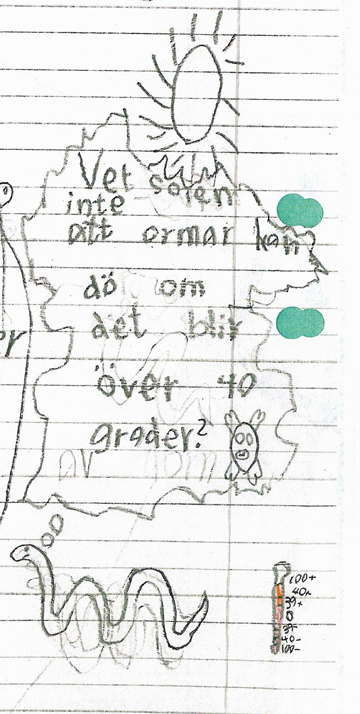 Vet solen
inte
att ormar kan
dö om
det blir
över 40
grader?
100+
40+
39+
0
39-
40-
100-